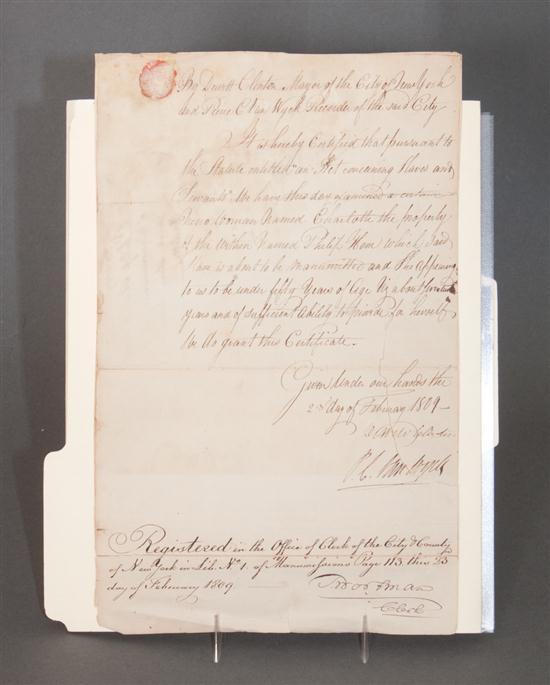 By Dewitt Clinton Mayor of the City of New York
and Pierre C Van Wyck Recorder of the said City
It is hereby Certified that pursuant to
the Statute entitled "an Act concerning Slaves and
Servants" We have this day examined a certain
Negro Woman Named Charlotte the property
of the within Named Philip Hone which said
Slave is about to be manumitted and She Appearing
to us to be under fifty Years of Age Viz about
years and of sufficient Ability to provide for herself
We do grant this Certificate.
Given Under our hands the
day of February 1809 —
P. C. Van Wyck
Registered in the Office of Clerk of the City & County
of New York in Lib: No 1. of Manumissions Page 113 this 25
day of February 1809
Clerk